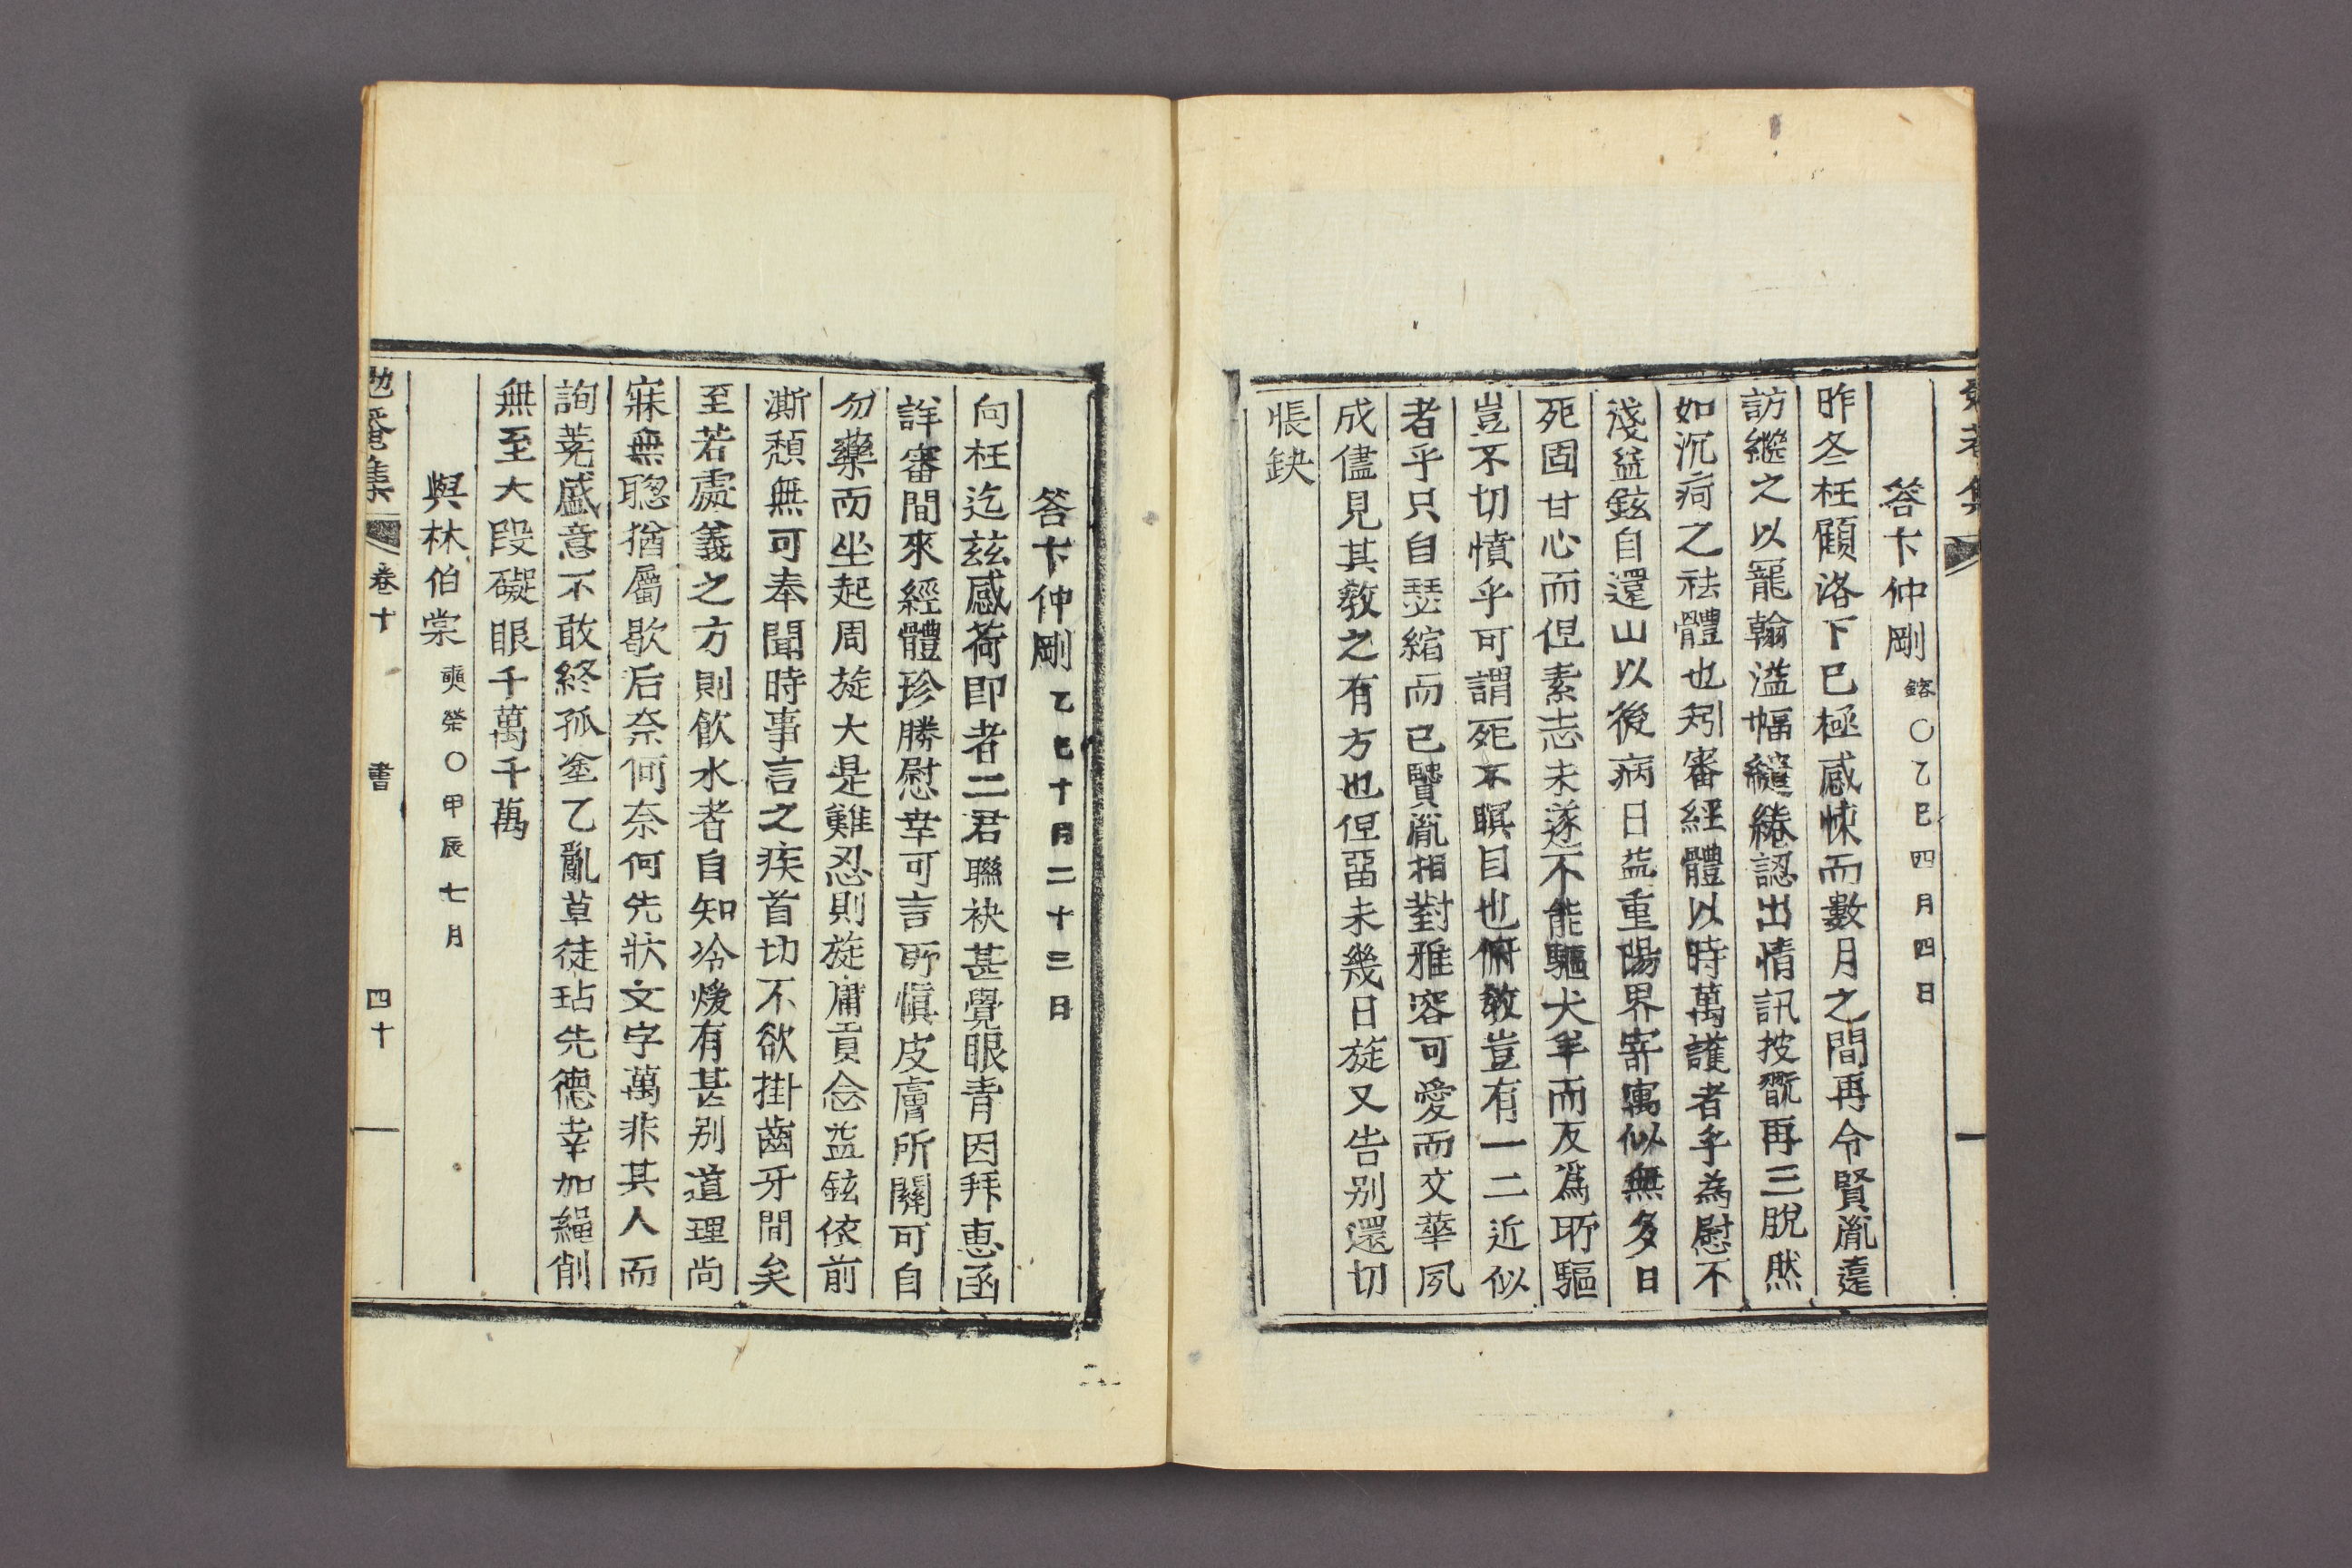 答卞仲剛 鎔○乙巳四月四日
昨冬枉顧洛下已極感悚而數月之間再令賢胤遠
訪繼之以寵翰滥幅繾綣認出情訊披翫再三脫然
如沉疴之祛體也矧審經體以時萬護者乎為慰不
淺益鉉自還山以後病日益重陽界寄寓似無多日
死固甘心而但素志未遂不能驅犬羊而反爲所驅
豈不切憤乎可謂死不瞑目也俯教豈有一二近似
者乎只自瑟縮而已賢胤相對雅容可愛而文華夙
成儘見其教之有方也但畱未幾日旋又告别還切
悵缺
答卞仲剛 乙巳十月二十三日
向枉迄茲感荷即者二君聯袂甚覺眼青因拜惠函
詳審間來經體珍勝慰幸可言所愼皮膚所關可自
勿藥而坐起周旋大是難忍則旋庸貢念益鉉依前
澌頹無可奉聞時事言之疾首切不欲掛齒牙間矣
至若處義之方則飮水者自知冷煖有甚别道理尚
寐無聰猶屬歇后奈何奈何先狀文字萬非其人而
詢蕘盛意不敢終孤塗乙亂草徒玷先德幸加繩削
無至大段礙眼千萬千萬
與林伯棠 奭榮○甲辰七月
勉菴集 卷十 書 四十